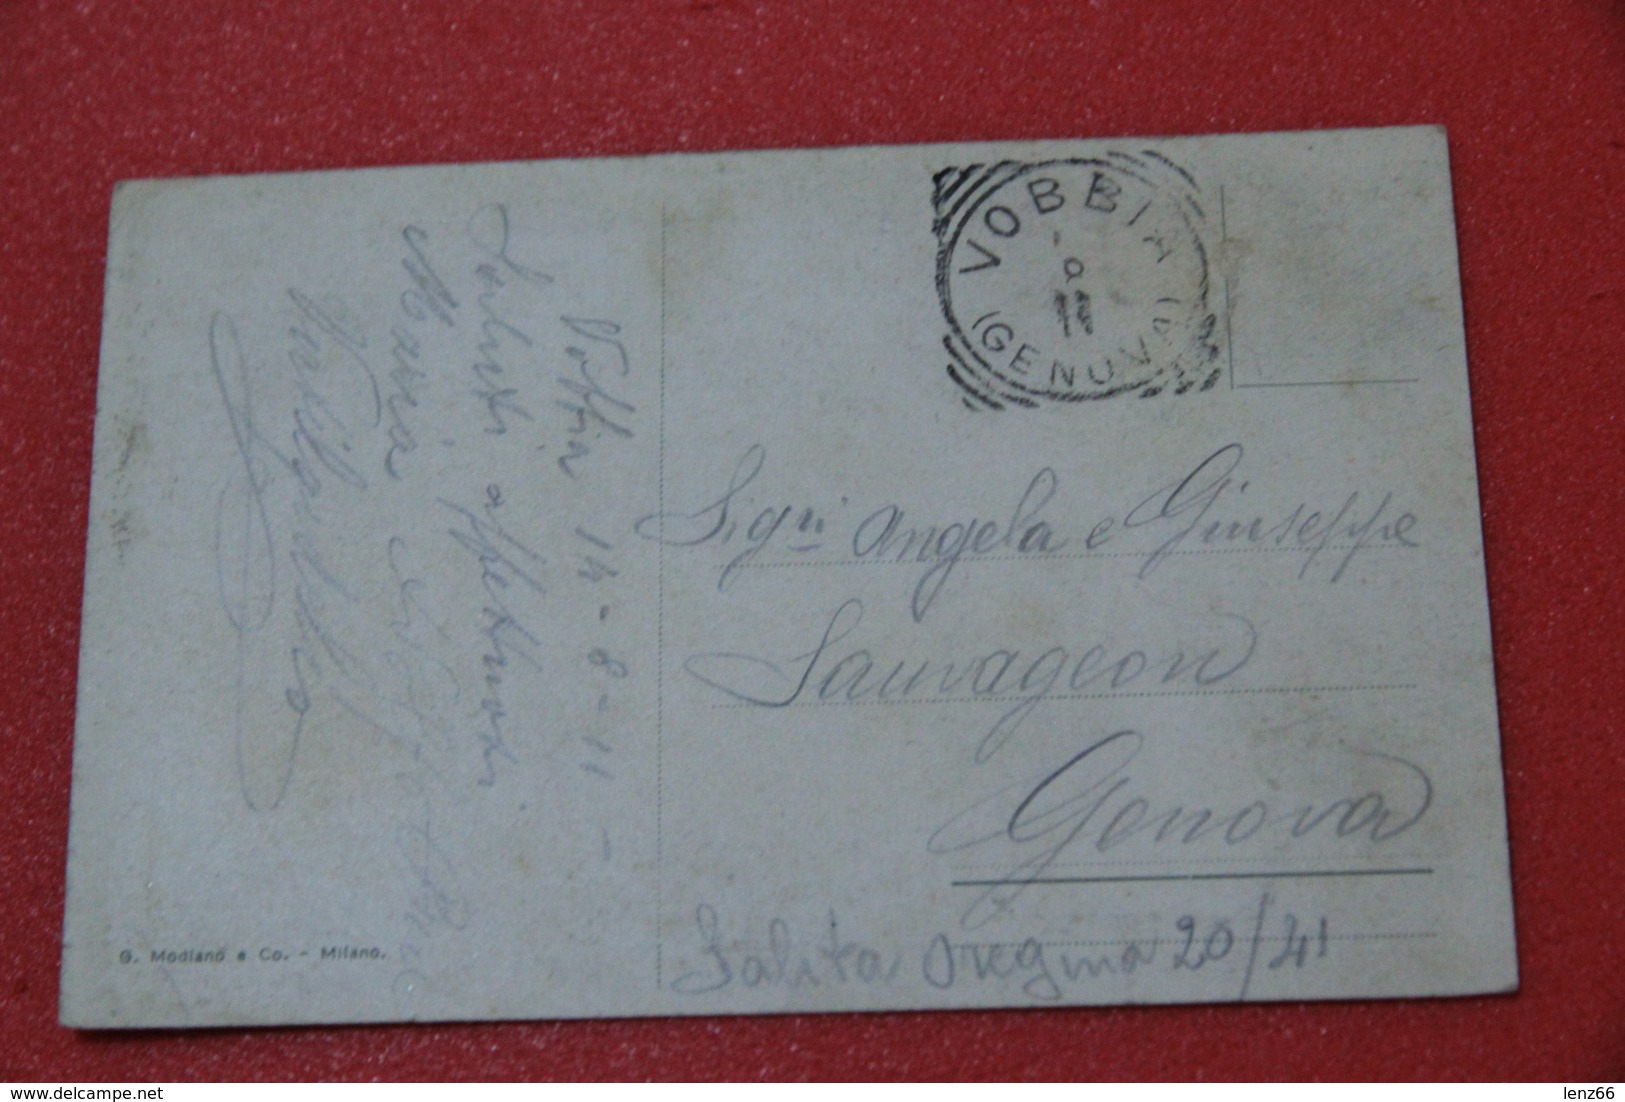 VOBBIA
(GENOVA)
Vobbia 14-8-11-
Saluti affettuosi
Maria
Sigri Angela e Giuseppe
Sauvageon
Genova
Salita Oregina 20/41
G. Modiano e Co. - Milano.
delcampe.net
lenz66